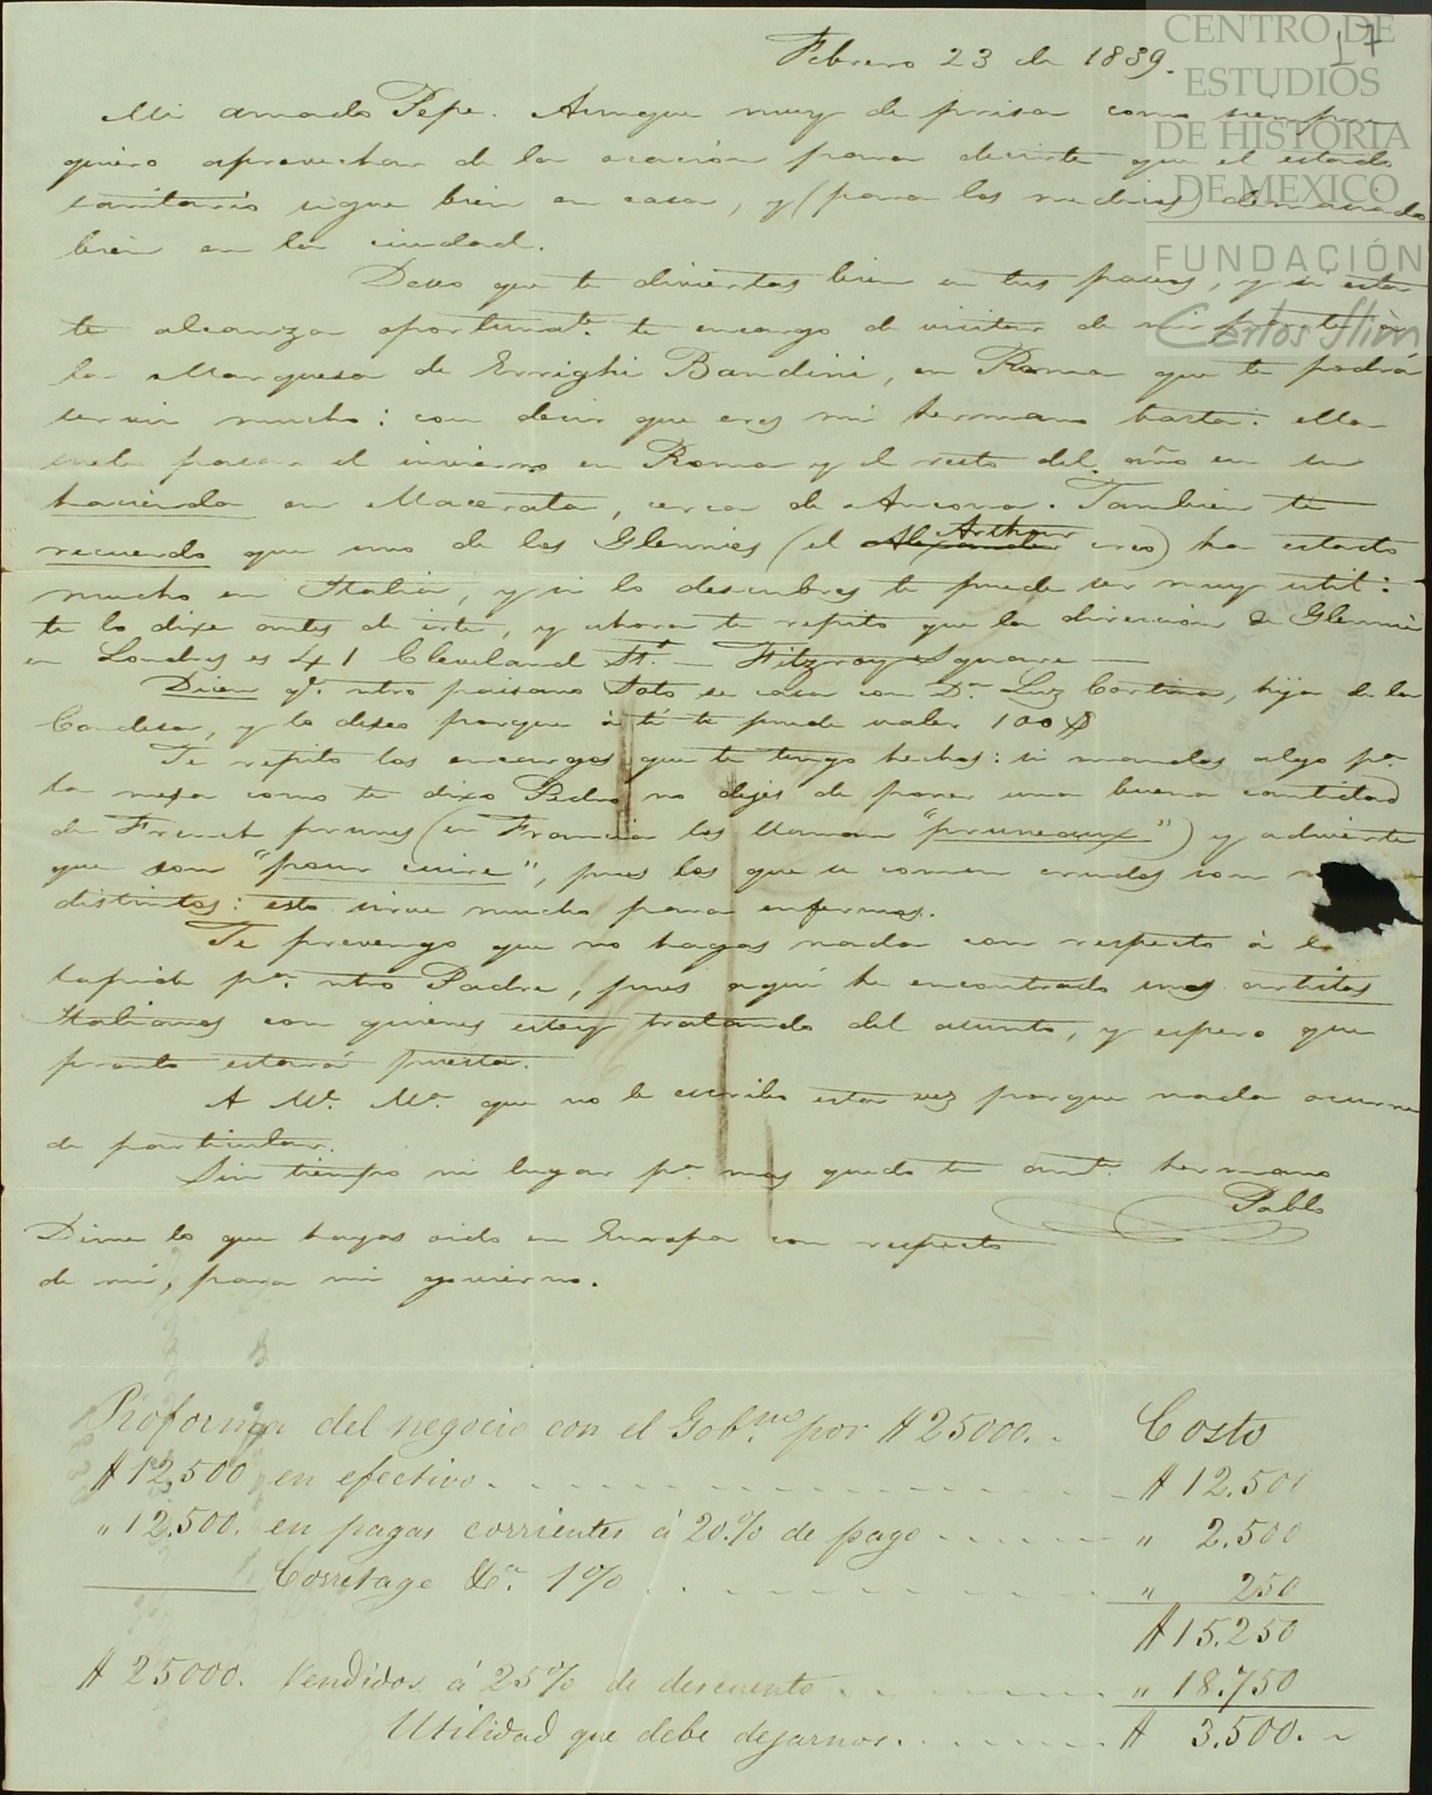 17
CENTRO DE
ESTUDIOS
DE HISTORIA
DE MEXICO
FUNDACIÓN
Carlos Slim
Febrero 23 de 1839.
Mi amado Pepe. Aunque muy de prisa como siempre
quiero aprovechar de la ocación para decirte que el estado
sanitario sigue bien en casa, y (para los medicos) demasiado
bien en la ciudad.
Deseo que te diviertas bien en tus paseos, y si esta
te alcanza oportunate. te encargo de visitar de mi parte à
la Marquesa de Errighi Bandini, en Roma que te podrá
servir mucho: con decir que eres mi hermano basta: ella
suele pasar el invierno en Roma y el resto del año en su
hacienda en Macerata, cerca de Ancona. Tambien te
recuerdo que uno de los Glennies (el Alexander Arthur creo) ha estado
mucho en Italia, y si lo descubres te puede ser muy util:
te lo dixe antes de irte, y ahora te repito que la direccion de Glennie
en Londres es 41 Cleveland St. — Fitzroy Square —
Dicen qe. ntro paisano Soto se casa con Da. Luz Cortina, hija de la
Condesa, y lo deseo porque à tí te puede valer 100 $
Te repito los encargos que te tengo hechos: si mandas algo pa.
la mesa como te dixo Pedro no dejes de poner una buena cantidad
de French prunes (en Francia los llaman "pruneaux") y advierte
que son "pour cuire", pues los que se comen crudos son
distintos: esto sirve mucho para enfermos.
Te prevengo que no hagas nada con respecto à la
lapida pa. ntro Padre, pues aquí he encontrado unos artistas
Italianos con quienes estoy tratando del asunto, y espero que
pronto estará puesta.
A Ma. Ma. que no le escribo esta vez porque nada ocurre
de particular.
Sin tiempo ni lugar pa. mas quedo tu amte. hermano
Pablo
Dime lo que hayas oido en Europa con respecto
de mí, para mi govierno.
Proforma del negocio con el Gobno. por $ 25000. Costo
$ 12,500 en efectivo. $ 12.500
" 12.500. en pagas corrientes á 20.% de pago " 2.500
Corretage &a. 1% " 250
$ 15.250
$ 25000. Vendidos á 25% de descuento " 18.750
Utilidad que debe dejarnos. $ 3.500.